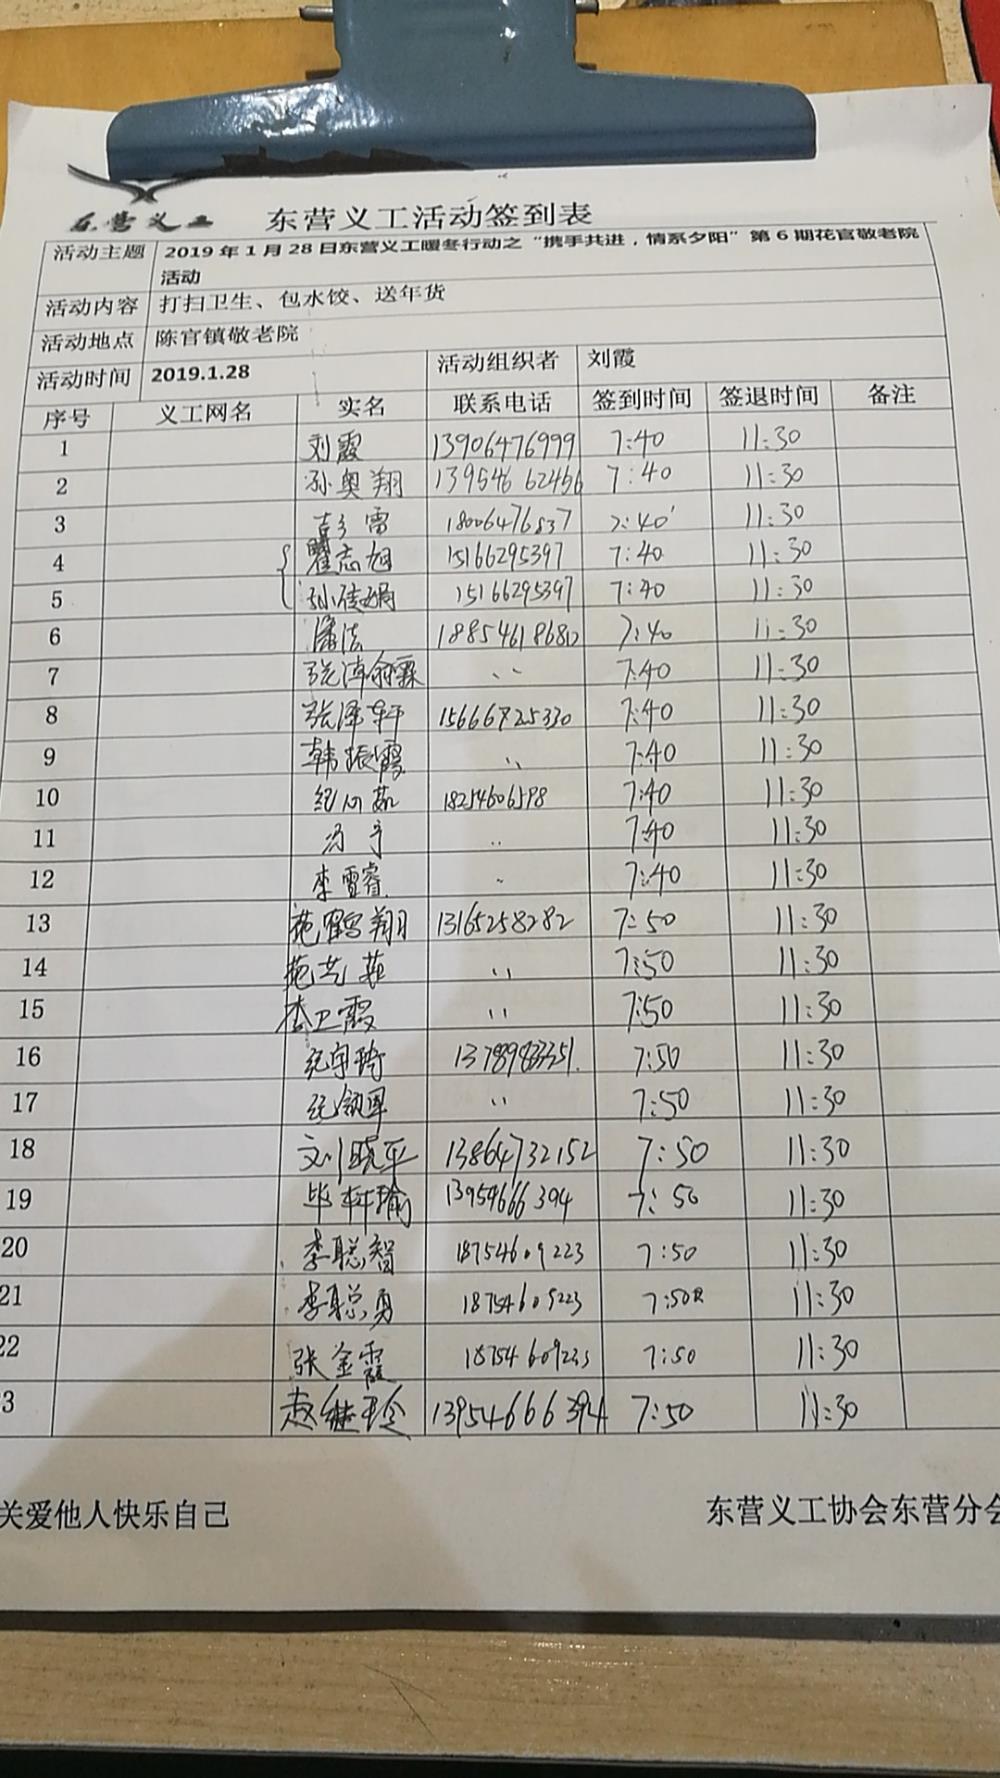 东营义工 东营义工活动签到表
活动主题 2019年1月28日东营义工暖冬行动之“携手共进，情系夕阳”第6期花官敬老院
活动
活动内容 打扫卫生、包水饺、送年货
活动地点 陈官镇敬老院
活动时间 2019.1.28 活动组织者 刘霞
序号 义工网名 实名 联系电话 签到时间 签退时间 备注
1 刘霞 13906476999 7:40 11:30
2 孙奥翔 13954662456 7:40 11:30
3 彭雷 18006476837 7:40 11:30
4 瞿志旭 15166295397 7:40 11:30
5 15166295397 7:40 11:30
6 潘洁 7:40 11:30
7 7:40 11:30
8 张泽轩 15666725330 7:40 11:30
9 韩振霞 〃 7:40 11:30
10 纪心茹 18254606598 7:40 11:30
11 〃 7:40 11:30
12 李雪睿 〃 7:40 11:30
13 范鹤翔 13165258282 7:50 11:30
14 范艺菲 〃 7:50 11:30
15 李卫霞 〃 7:50 11:30
16 纪宇琦 7:50 11:30
17 〃 7:50 11:30
18 刘晓平 13864732152 7:50 11:30
19 毕轩瑜 13954666394 7:50 11:30
20 李聪智 18754609223 7:50 11:30
21 李聪勇 18754609223 7:50 11:30
22 张金霞 18754609223 7:50 11:30
3 赵继玲 13954666394 7:50 11:30
关爱他人快乐自己 东营义工协会东营分会